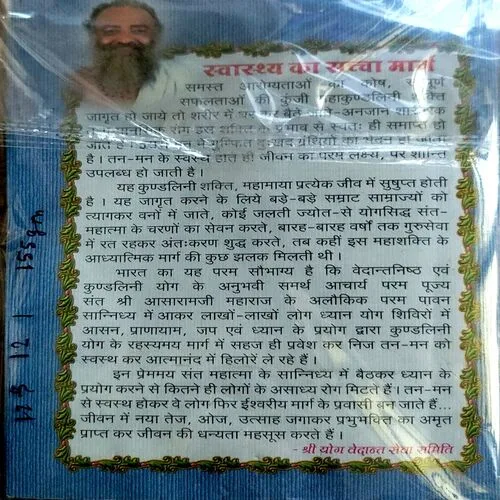 स्वास्थ्य का सच्चा मार्ग
समस्त आरोग्यताओं का कोष, सम्पूर्ण
सफलताओं की कुंजी महाकुण्डलिनी शक्ति
जागृत हो जाये तो शरीर में घर कर बैठे जाने-अनजान शारीरिक
मानसिक रोग इस शक्ति के प्रभाव से स्वतः ही समाप्त हो
जाते हैं। ग्रंथियों का भेदन हो जाता
है। तन-मन के स्वस्थ होते ही जीवन का परम लक्ष्य, पर शान्ति
उपलब्ध हो जाता है।
यह कुण्डलिनी शक्ति, महामाया प्रत्येक जीव में सुषुप्त होती
है। यह जागृत करने के लिये बड़े-बड़े सम्राट साम्राज्यों को
त्यागकर वनों में जाते, कोई जलती ज्योत-से योगसिद्ध संत-
महात्मा के चरणों का सेवन करते, बारह-बारह वर्षों तक गुरुसेवा
में रत रहकर अंतःकरण शुद्ध करते, तब कहीं इस महाशक्ति के
आध्यात्मिक मार्ग की कुछ झलक मिलती थी।
भारत का यह परम सौभाग्य है कि वेदान्तनिष्ठ एवं
कुण्डलिनी योग के अनुभवी समर्थ आचार्य परम पूज्य
संत श्री आसारामजी महाराज के अलौकिक परम पावन
सान्निध्य में आकर लाखों-लाखों लोग ध्यान योग शिविरों में
आसन, प्राणायाम, जप एवं ध्यान के प्रयोग द्वारा कुण्डलिनी
योग के रहस्यमय मार्ग में सहज ही प्रवेश कर निज तन-मन को
स्वस्थ कर आत्मानंद में हिलोरें ले रहे हैं।
इन प्रेममय संत महात्मा के सान्निध्य में बैठकर ध्यान के
प्रयोग करने से कितने ही लोगों के असाध्य रोग मिटते हैं। तन-मन
से स्वस्थ होकर वे लोग फिर ईश्वरीय मार्ग के प्रवासी बन जाते हैं...
जीवन में नया तेज, ओज, उत्साह जगाकर प्रभुभक्ति का अमृत
प्राप्त कर जीवन की धन्यता महसूस करते हैं।
- श्री योग वेदान्त सेवा समिति
155gm